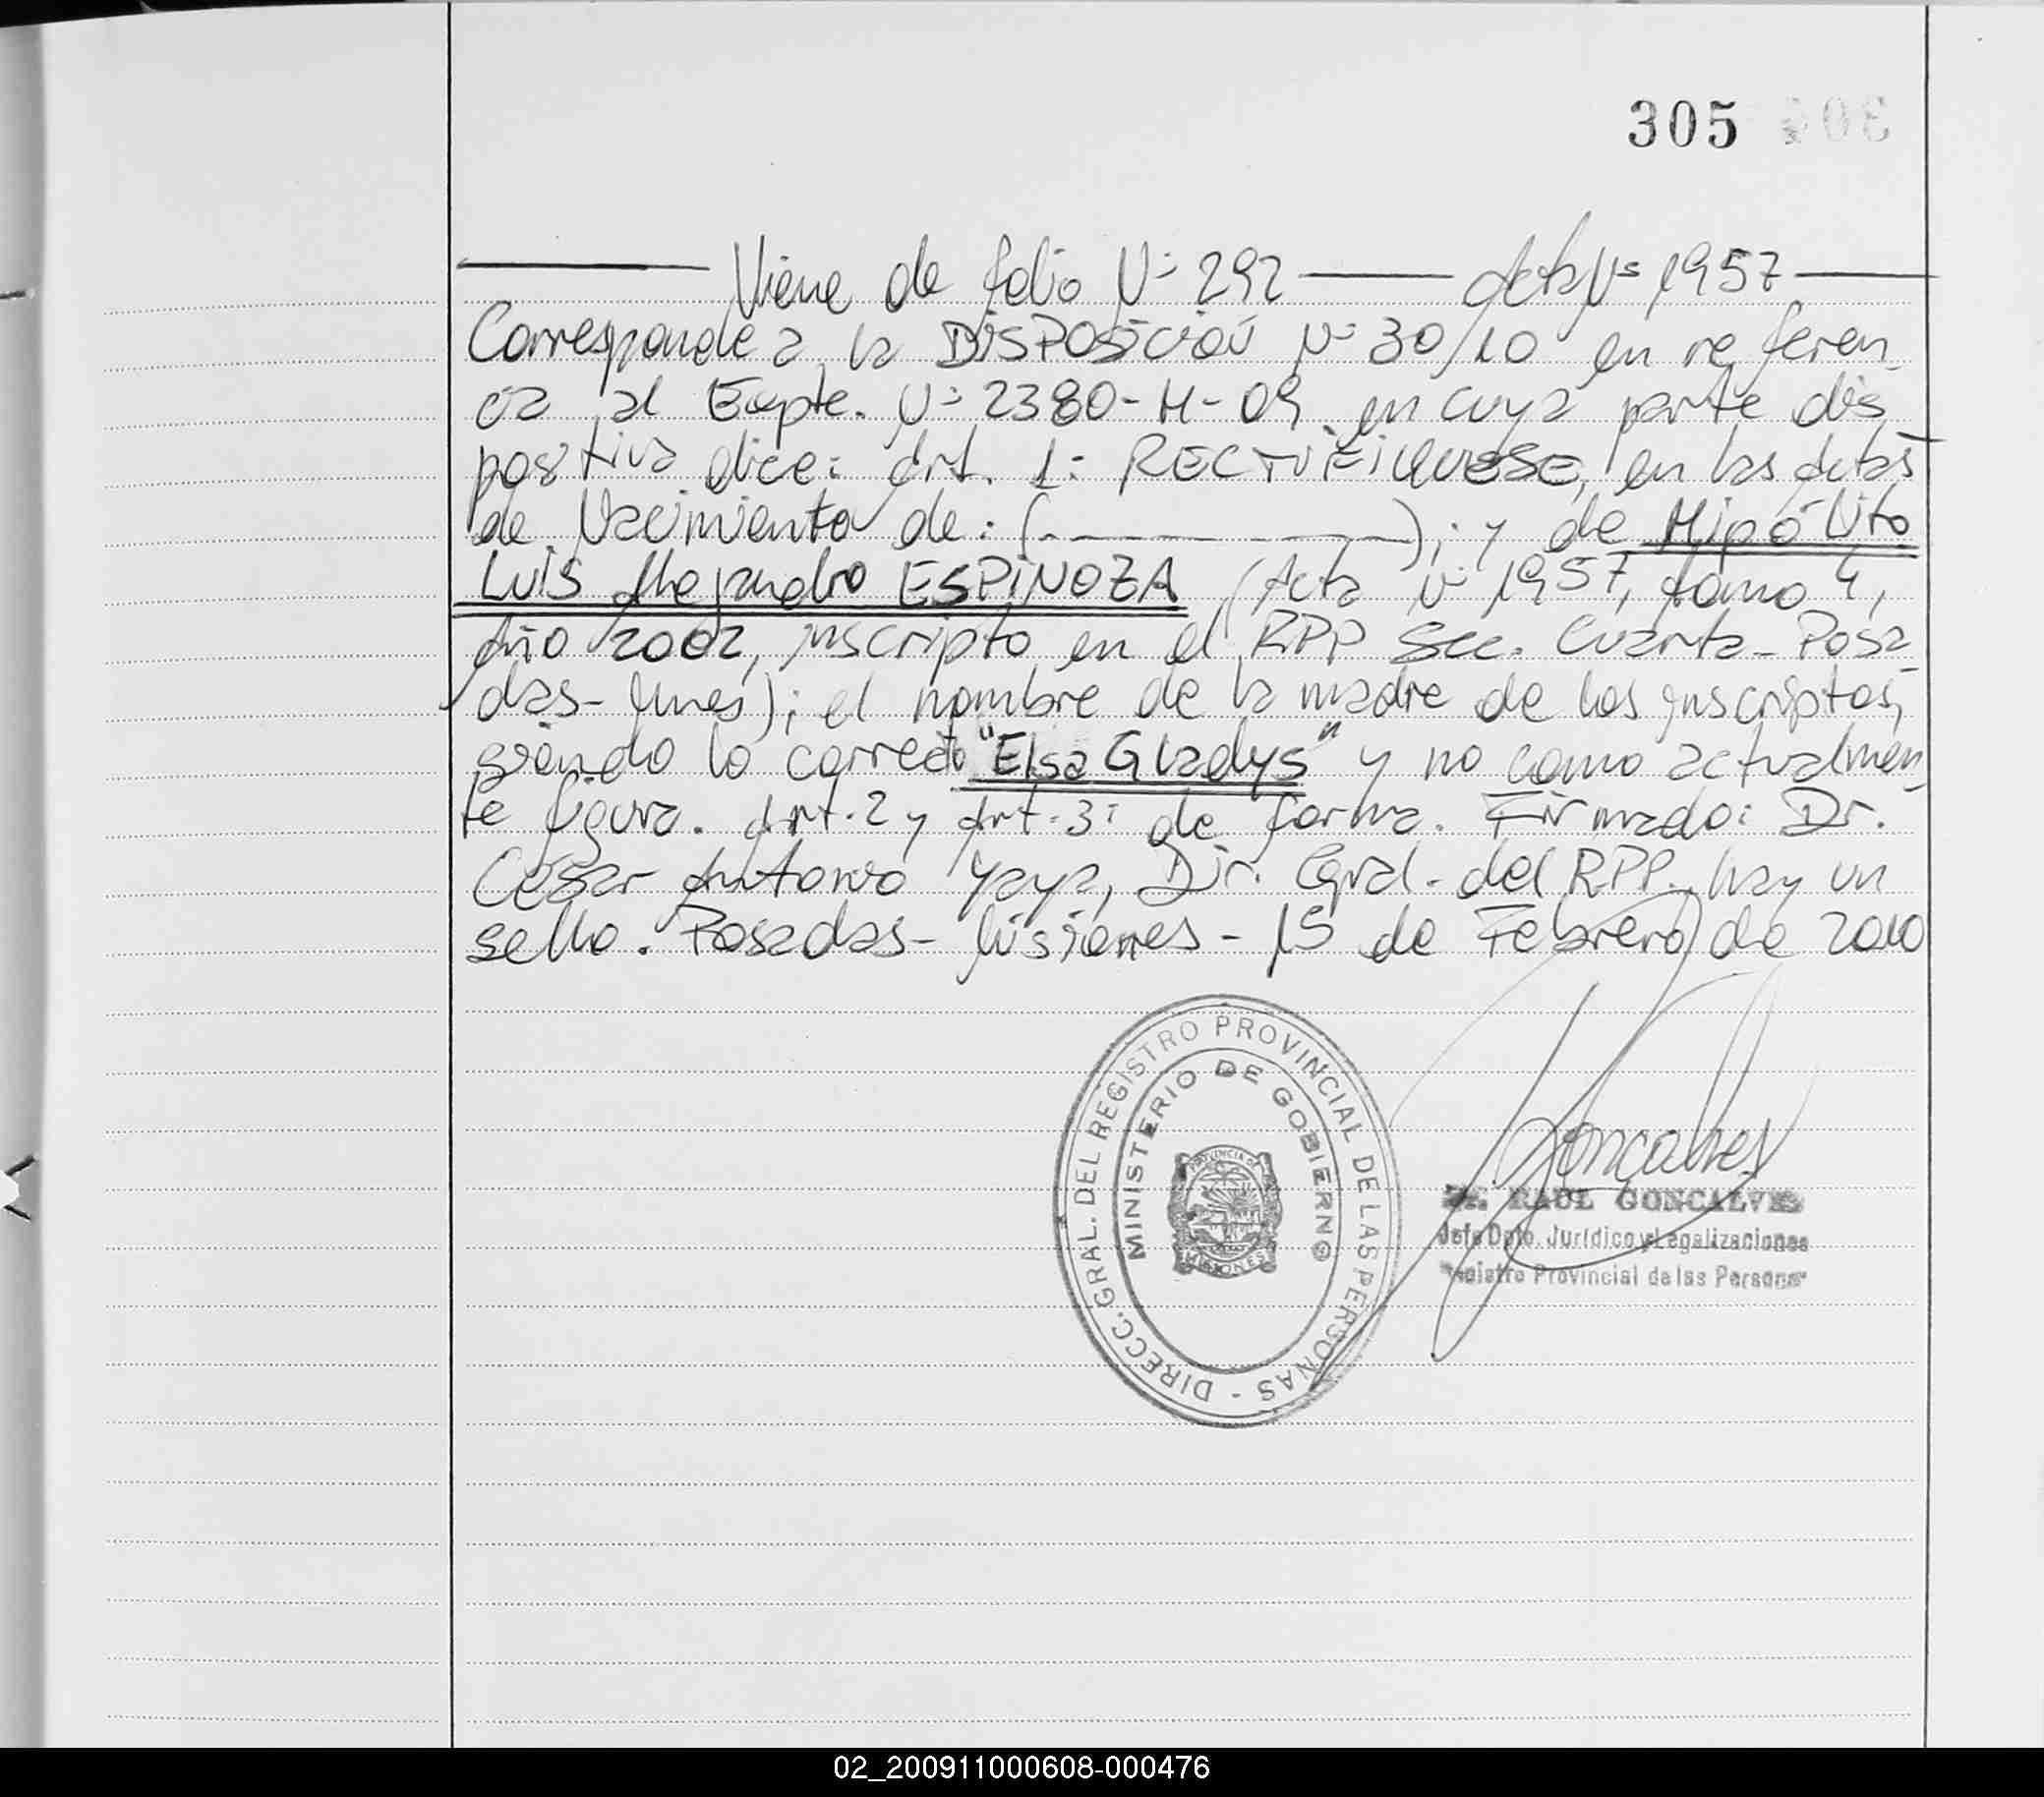 305
Viene de folio Nº 292 — Acta Nº 1957
Corresponde a la DISPOSICIÓN Nº 30/10 en referen
cia al Expte. Nº 2380-H-09 en cuya parte dis
positiva dice: Art. 1: RECTIFIQUESE, en las Actas
de Nacimiento de: (- - - - - - - - -); y de Hipólito
Luis Alejandro ESPINOZA (Acta Nº 1957, tomo 4,
Año 2002, inscripto en el RPP Sec. Cuarta-Posa
das-Mnes); el nombre de la madre de los inscriptos,
siendo lo correcto "Elsa Gladys" y no como actualmen
te figura. Art. 2 y Art. 3: de forma. Firmado: Dr.
César Antonio Yaya, Dir. Gral. del RPP. hay un
sello. Posadas-Misiones-15 de Febrero de 2010
DIRECC. GRAL. DEL REGISTRO PROVINCIAL DE LAS PERSONAS -
MINISTERIO DE GOBIERNO
PROVINCIA DE
MISIONES
Goncalves
Dr. RAUL GONCALVES
Jefe Dpto. Jurídico y Legalizaciones
Registro Provincial de las Personas
02_200911000608-000476